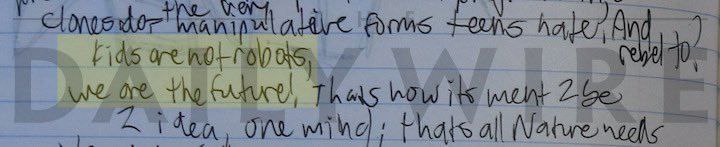 the very
clones do manipulative forms teens hate? And
rebel to?
Kids are not robots,
we are the future! Thats how its ment 2 be
2 idea, one mind; thats all Nature needs
DAILY WIRE